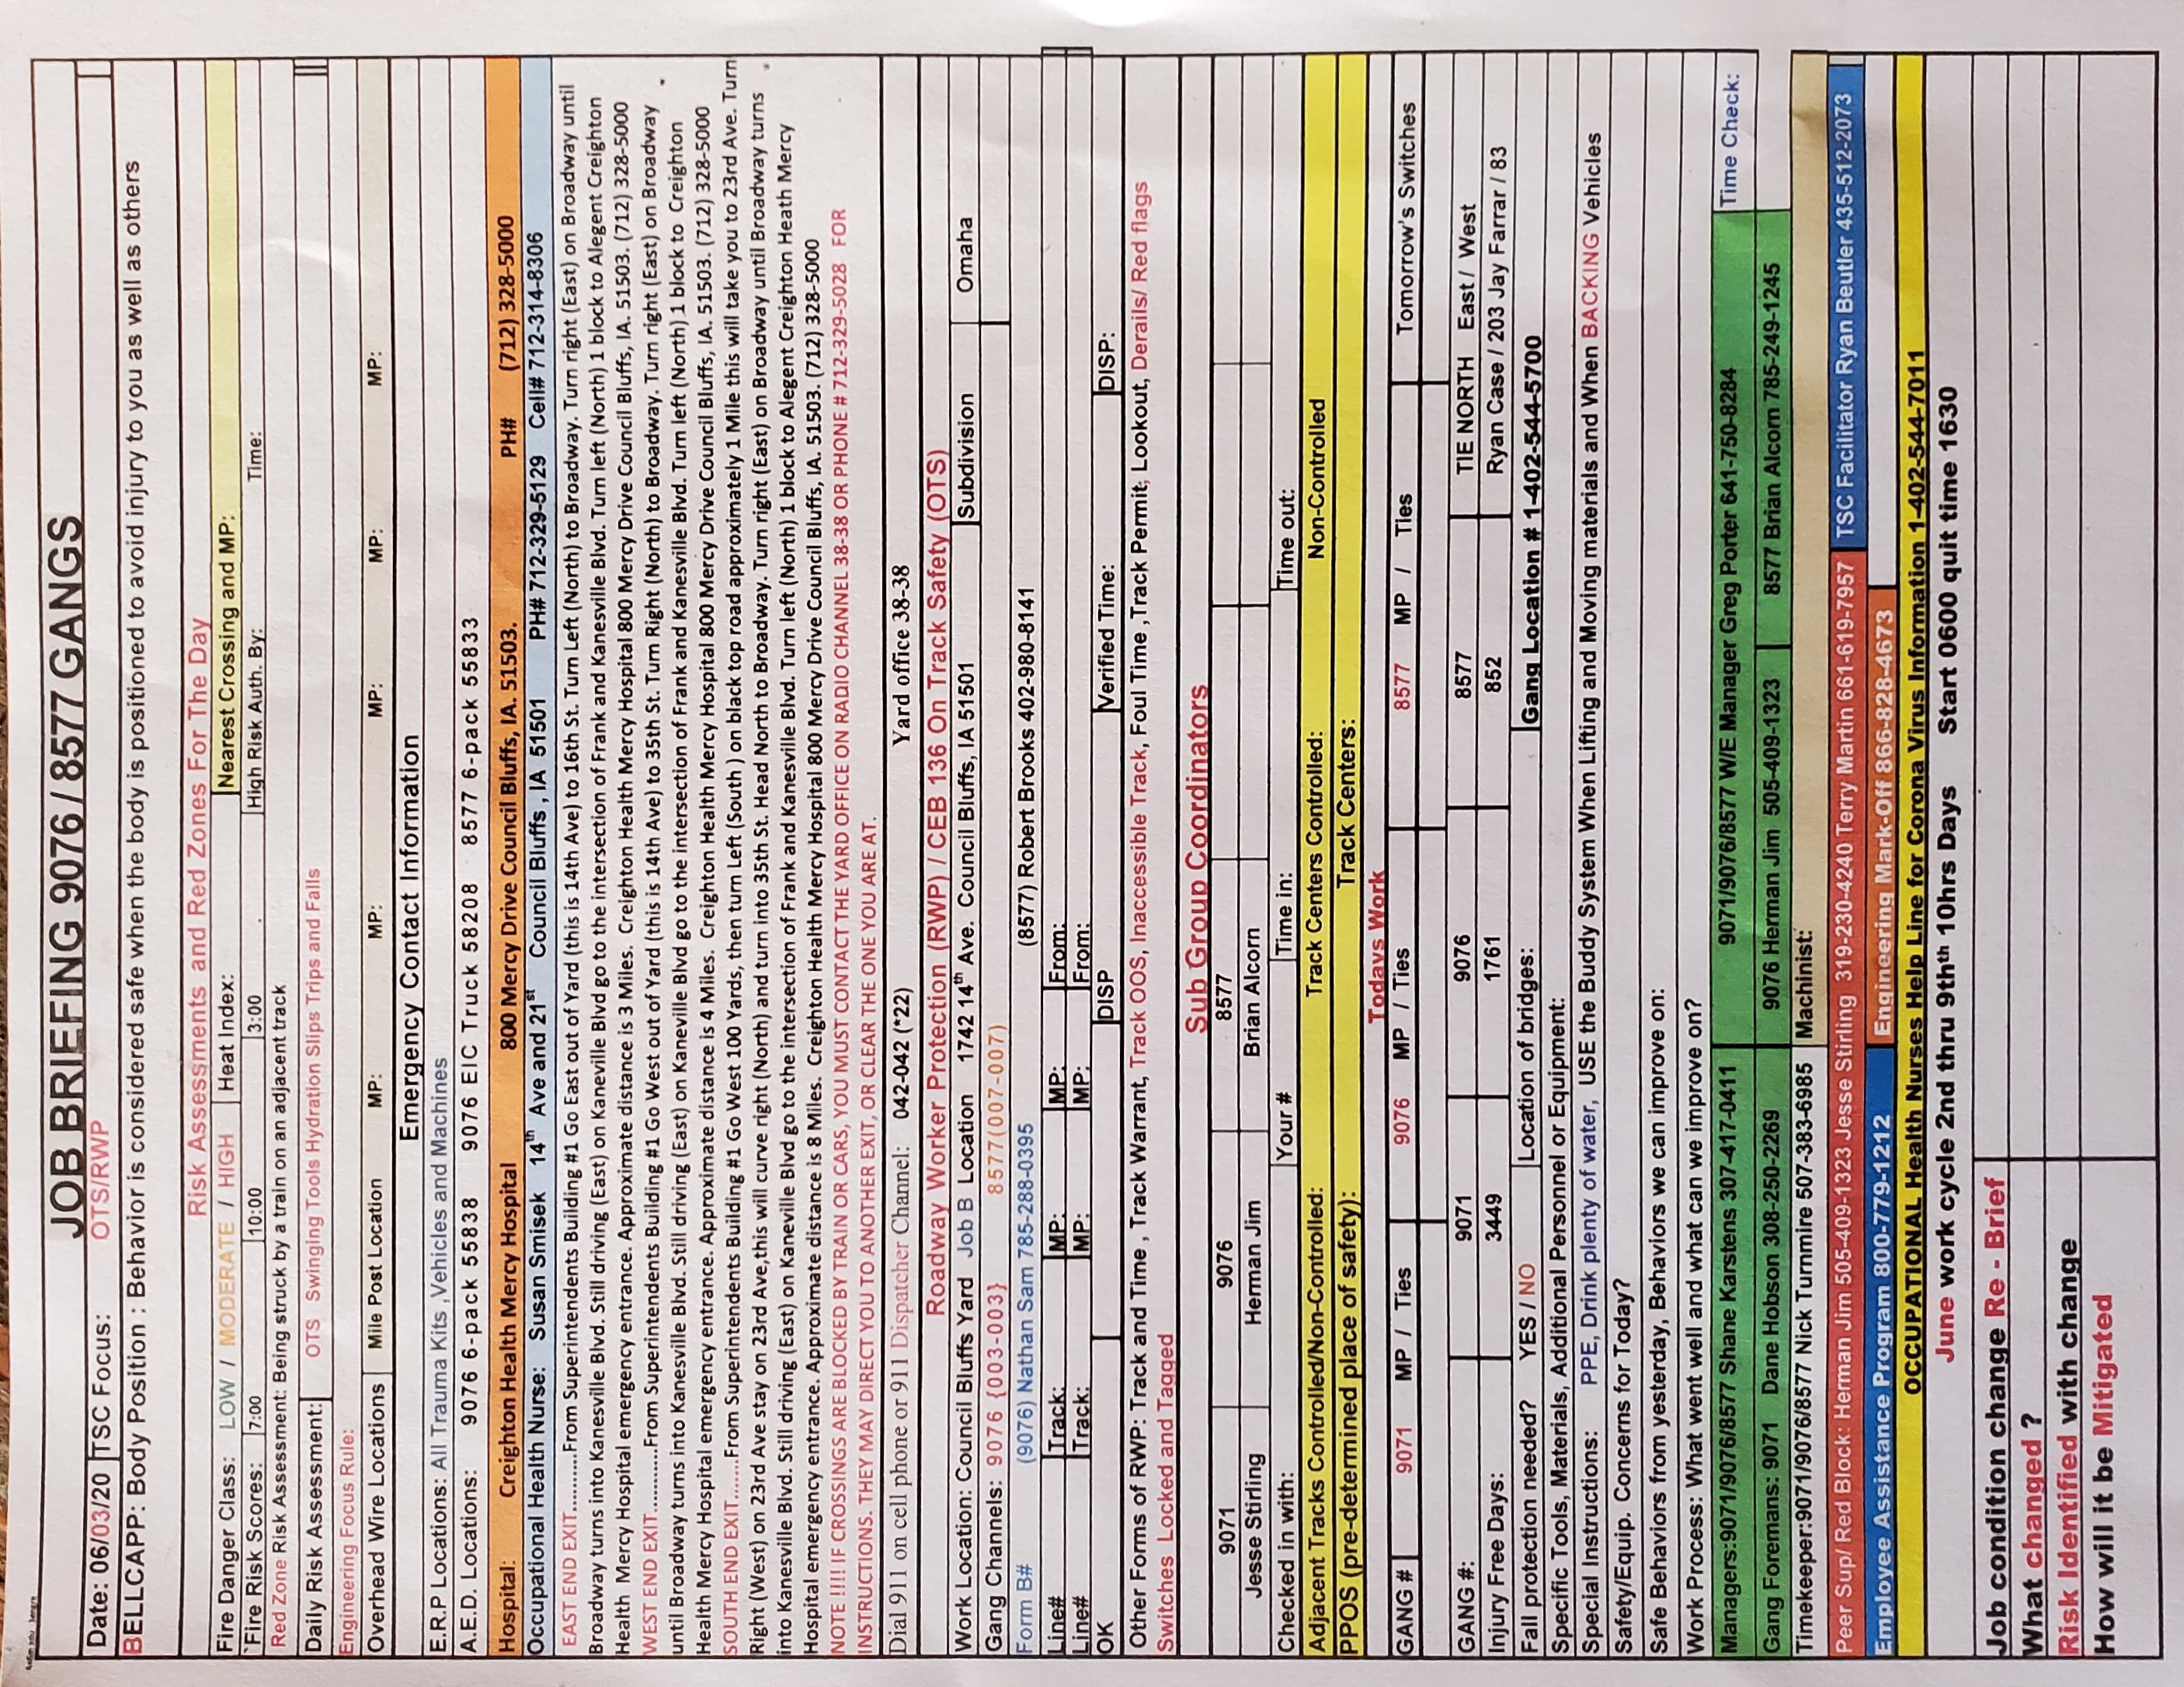 JOB BRIEFING 9076 / 8577 GANGS
Date: 06/03/20 TSC Focus: OTS/RWP
BELLCAPP: Body Position : Behavior is considered safe when the body is positioned to avoid injury to you as well as others
Risk Assessments and Red Zones For The Day
Fire Danger Class: LOW / MODERATE / HIGH Heat Index: Nearest Crossing and MP:
`Fire Risk Scores: 7:00 10:00 3:00 High Risk Auth. By: Time:
Red Zone Risk Assessment: Being struck by a train on an adjacent track
Daily Risk Assessment: OTS Swinging Tools Hydration Slips Trips and Falls
Engineering Focus Rule:
Overhead Wire Locations Mile Post Location MP: MP: MP: MP: MP:
Emergency Contact Information
E.R.P Locations: All Trauma Kits ,Vehicles and Machines
A.E.D. Locations: 9076 6-pack 55838 9076 EIC Truck 58208 8577 6-pack 55833
Hospital: Creighton Health Mercy Hospital 800 Mercy Drive Council Bluffs, IA. 51503. PH# (712) 328-5000
Occupational Health Nurse: Susan Smisek 14th Ave and 21st Council Bluffs , IA 51501 PH# 712-329-5129 Cell# 712-314-8306
EAST END EXIT..........From Superintendents Building #1 Go East out of Yard (this is 14th Ave) to 16th St. Turn Left (North) to Broadway. Turn right (East) on Broadway until
Broadway turns into Kanesville Blvd. Still driving (East) on Kaneville Blvd go to the intersection of Frank and Kanesville Blvd. Turn left (North) 1 block to Alegent Creighton
Health Mercy Hospital emergency entrance. Approximate distance is 3 Miles. Creighton Health Mercy Hospital 800 Mercy Drive Council Bluffs, IA. 51503. (712) 328-5000
WEST END EXIT...........From Superintendents Building #1 Go West out of Yard (this is 14th Ave) to 35th St. Turn Right (North) to Broadway. Turn right (East) on Broadway
until Broadway turns into Kanesville Blvd. Still driving (East) on Kaneville Blvd go to the intersection of Frank and Kanesville Blvd. Turn left (North) 1 block to Creighton
Health Mercy Hospital emergency entrance. Approximate distance is 4 Miles. Creighton Health Mercy Hospital 800 Mercy Drive Council Bluffs, IA. 51503. (712) 328-5000
SOUTH END EXIT.......From Superintendents Building #1 Go West 100 Yards, then turn Left (South ) on black top road approximately 1 Mile this will take you to 23rd Ave. Turn
Right (West) on 23rd Ave stay on 23rd Ave,this will curve right (North) and turn into 35th St. Head North to Broadway. Turn right (East) on Broadway until Broadway turns
into Kanesville Blvd. Still driving (East) on Kaneville Blvd go to the intersection of Frank and Kanesville Blvd. Turn left (North) 1 block to Alegent Creighton Heath Mercy
Hospital emergency entrance. Approximate distance is 8 Miles. Creighton Health Mercy Hospital 800 Mercy Drive Council Bluffs, IA. 51503. (712) 328-5000
NOTE !!!! IF CROSSINGS ARE BLOCKED BY TRAIN OR CARS, YOU MUST CONTACT THE YARD OFFICE ON RADIO CHANNEL 38-38 OR PHONE # 712-329-5028 FOR
INSTRUCTIONS. THEY MAY DIRECT YOU TO ANOTHER EXIT, OR CLEAR THE ONE YOU ARE AT.
Dial 911 on cell phone or 911 Dispatcher Channel: 042-042 (*22) Yard office 38-38
Roadway Worker Protection (RWP) / CEB 136 On Track Safety (OTS)
Work Location: Council Bluffs Yard Job B Location 1742 14th Ave. Council Bluffs, IA 51501 Subdivision Omaha
Gang Channels: 9076 {003-003} 8577(007-007)
Form B# (9076) Nathan Sam 785-288-0395 (8577) Robert Brooks 402-980-8141
Line# Track: MP: MP: From:
Line# Track: MP: MP: From:
OK DISP Verified Time: DISP:
Other Forms of RWP: Track and Time , Track Warrant, Track OOS, Inaccessible Track, Foul Time ,Track Permit; Lookout, Derails/ Red flags
Switches Locked and Tagged
Sub Group Coordinators
9071 9076 8577
Jesse Stirling Herman Jim Brian Alcorn
Checked in with: Your # Time in: Time out:
Adjacent Tracks Controlled/Non-Controlled: Track Centers Controlled: Non-Controlled
PPOS (pre-determined place of safety): Track Centers:
Todays Work
GANG # 9071 MP / Ties 9076 MP / Ties 8577 MP / Ties Tomorrow's Switches
GANG #: 9071 9076 8577 TIE NORTH East / West
Injury Free Days: 3449 1761 852 Ryan Case / 203 Jay Farrar / 83
Fall protection needed? YES / NO Location of bridges: Gang Location # 1-402-544-5700
Specific Tools, Materials, Additional Personnel or Equipment:
Special Instructions: PPE, Drink plenty of water, USE the Buddy System When Lifting and Moving materials and When BACKING Vehicles
Safety/Equip. Concerns for Today?
Safe Behaviors from yesterday, Behaviors we can improve on:
Work Process: What went well and what can we improve on?
Managers:9071/9076/8577 Shane Karstens 307-417-0411 9071/9076/8577 W/E Manager Greg Porter 641-750-8284 Time Check:
Gang Foremans: 9071 Dane Hobson 308-250-2269 9076 Herman Jim 505-409-1323 8577 Brian Alcorn 785-249-1245
Timekeeper:9071/9076/8577 Nick Turnmire 507-383-6985 Machinist:
Peer Sup/ Red Block: Herman Jim 505-409-1323 Jesse Stirling 319-230-4240 Terry Martin 661-619-7957 TSC Facilitator Ryan Beutler 435-512-2073
Employee Assistance Program 800-779-1212 Engineering Mark-Off 866-828-4673
OCCUPATIONAL Health Nurses Help Line for Corona Virus Information 1-402-544-7011
June work cycle 2nd thru 9thth 10hrs Days Start 0600 quit time 1630
Job condition change Re - Brief
What changed ?
Risk Identified with change
How will it be Mitigated